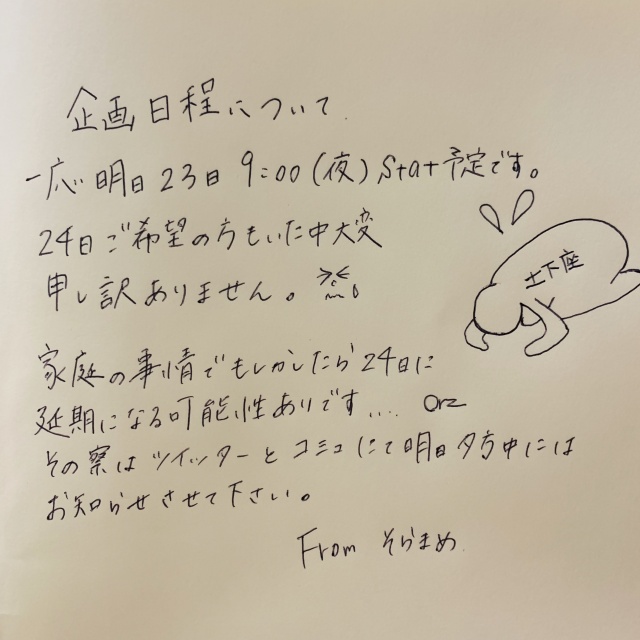 企画日程について
一応明日23日 9:00(夜)Stat予定です。
24日ご希望の方もいた中大変
申し訳ありません。
土下座
家庭の事情でもしかしたら24日に
延期になる可能性ありです.... Orz
その察はツイッターとコミュにて明日夕方中には
お知らせさせて下さい。
From そらまめ